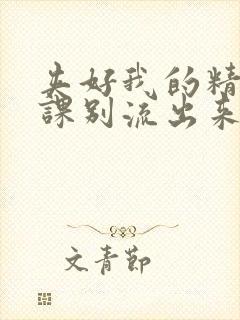 夹好我的精
課别流出来
文青節